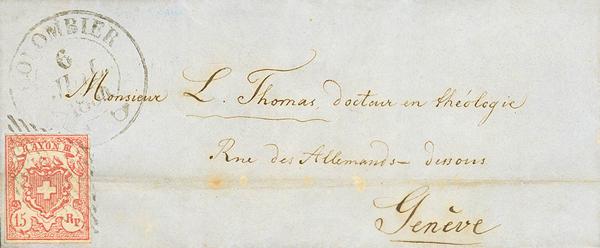 COLOMBIER
6
Monsieur L. Thomas, docteur en théologie
Rue des Allemands - dessous
Genève
RAYON III
15 Rp